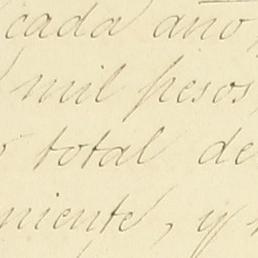 cada año,
mil pesos
total de
niente, y